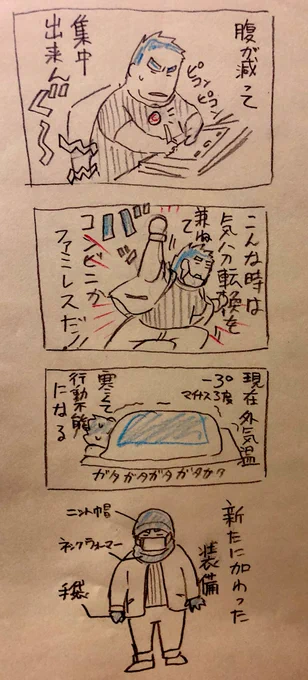 腹が減って
集中
出来ん゛
ピコン
ピコン
こんな時は
気分転換を
兼ねて
コンビニか
ファミレスだ!
現在外気温
-3°
マイナス3度
寒くて
行動不能
になる
ガタガタガタガタガタ
新たに加わった
装備
ニット帽
ネックウォーマー
手袋